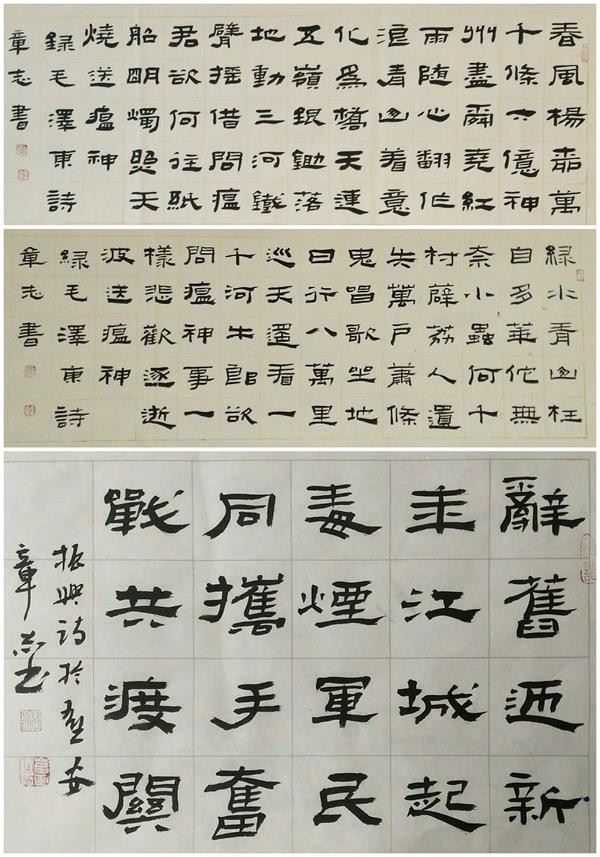 春風楊柳萬
千條六億神
州盡舜堯紅
雨随心翻作
浪青山着意
化為橋天連
五嶺銀鋤落
地動三河鐵
臂搖借問瘟
君欲何往紙
船明燭照天
燒送瘟神
錄毛澤東詩
章志書
綠水青山枉
自多華佗無
奈小蟲何千
村薜荔人遺
失萬戶蕭條
鬼唱歌坐地
日行八萬里
巡天遥看一
千河牛郎欲
問瘟神事一
樣悲歡逐逝
波送瘟神
錄毛澤東詩
章志書
辭舊迎新
年江城起
毒煙軍民
同攜手奮
戰共渡關
振興詩於安
章志書